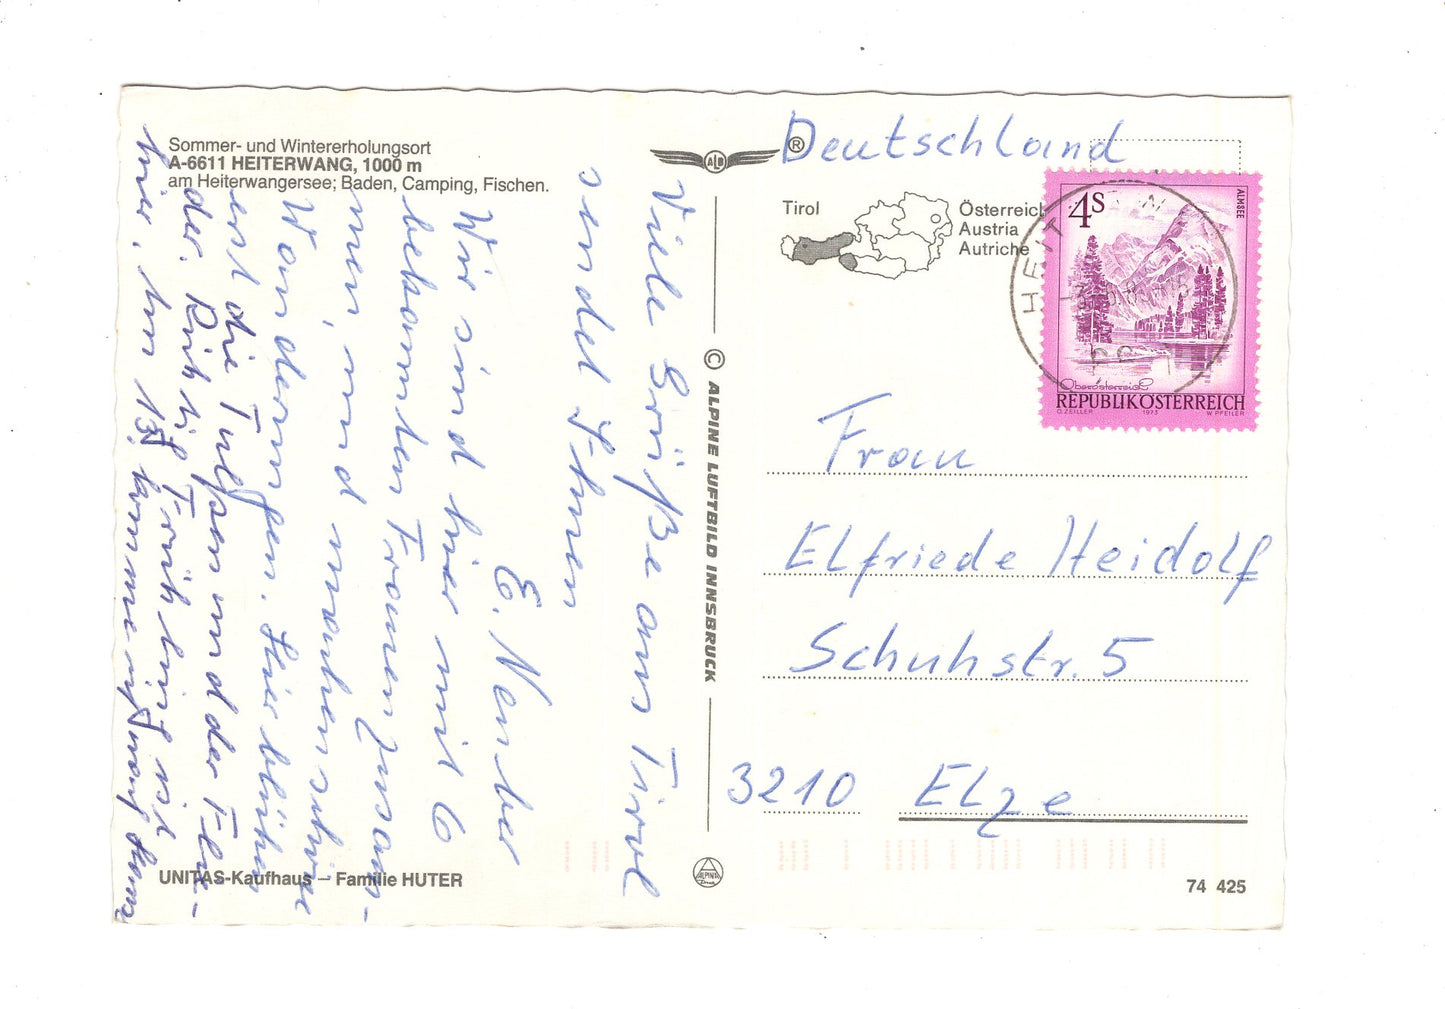 Sommer- und Wintererholungsort
A-6611 HEITERWANG, 1000 m
am Heiterwangersee; Baden, Camping, Fischen.
Viele Grüße aus Tirol
sendet Ihnen
E. Neuber
Wir sind hier mit 6
bekannten Frauen zusam-
men, und machen schöne
Wanderungen. Hier blühen
erst die Tulpen und der Flie-
der. Richtig Frühling ist
hier. Am 13. kommen
UNITAS-Kaufhaus – Familie HUTER
ALB
®
© ALPINE LUFTBILD INNSBRUCK
ALPINA
Druck
Deutschland
Tirol
Österreich
Austria
Autriche
4S
ALMSEE
Oberösterreich
REPUBLIK ÖSTERREICH
O. ZEILLER 1973 W. PFEILER
HEIT
Frau
Elfriede Heidolf
Schuhstr. 5
3210 Elze
74 425